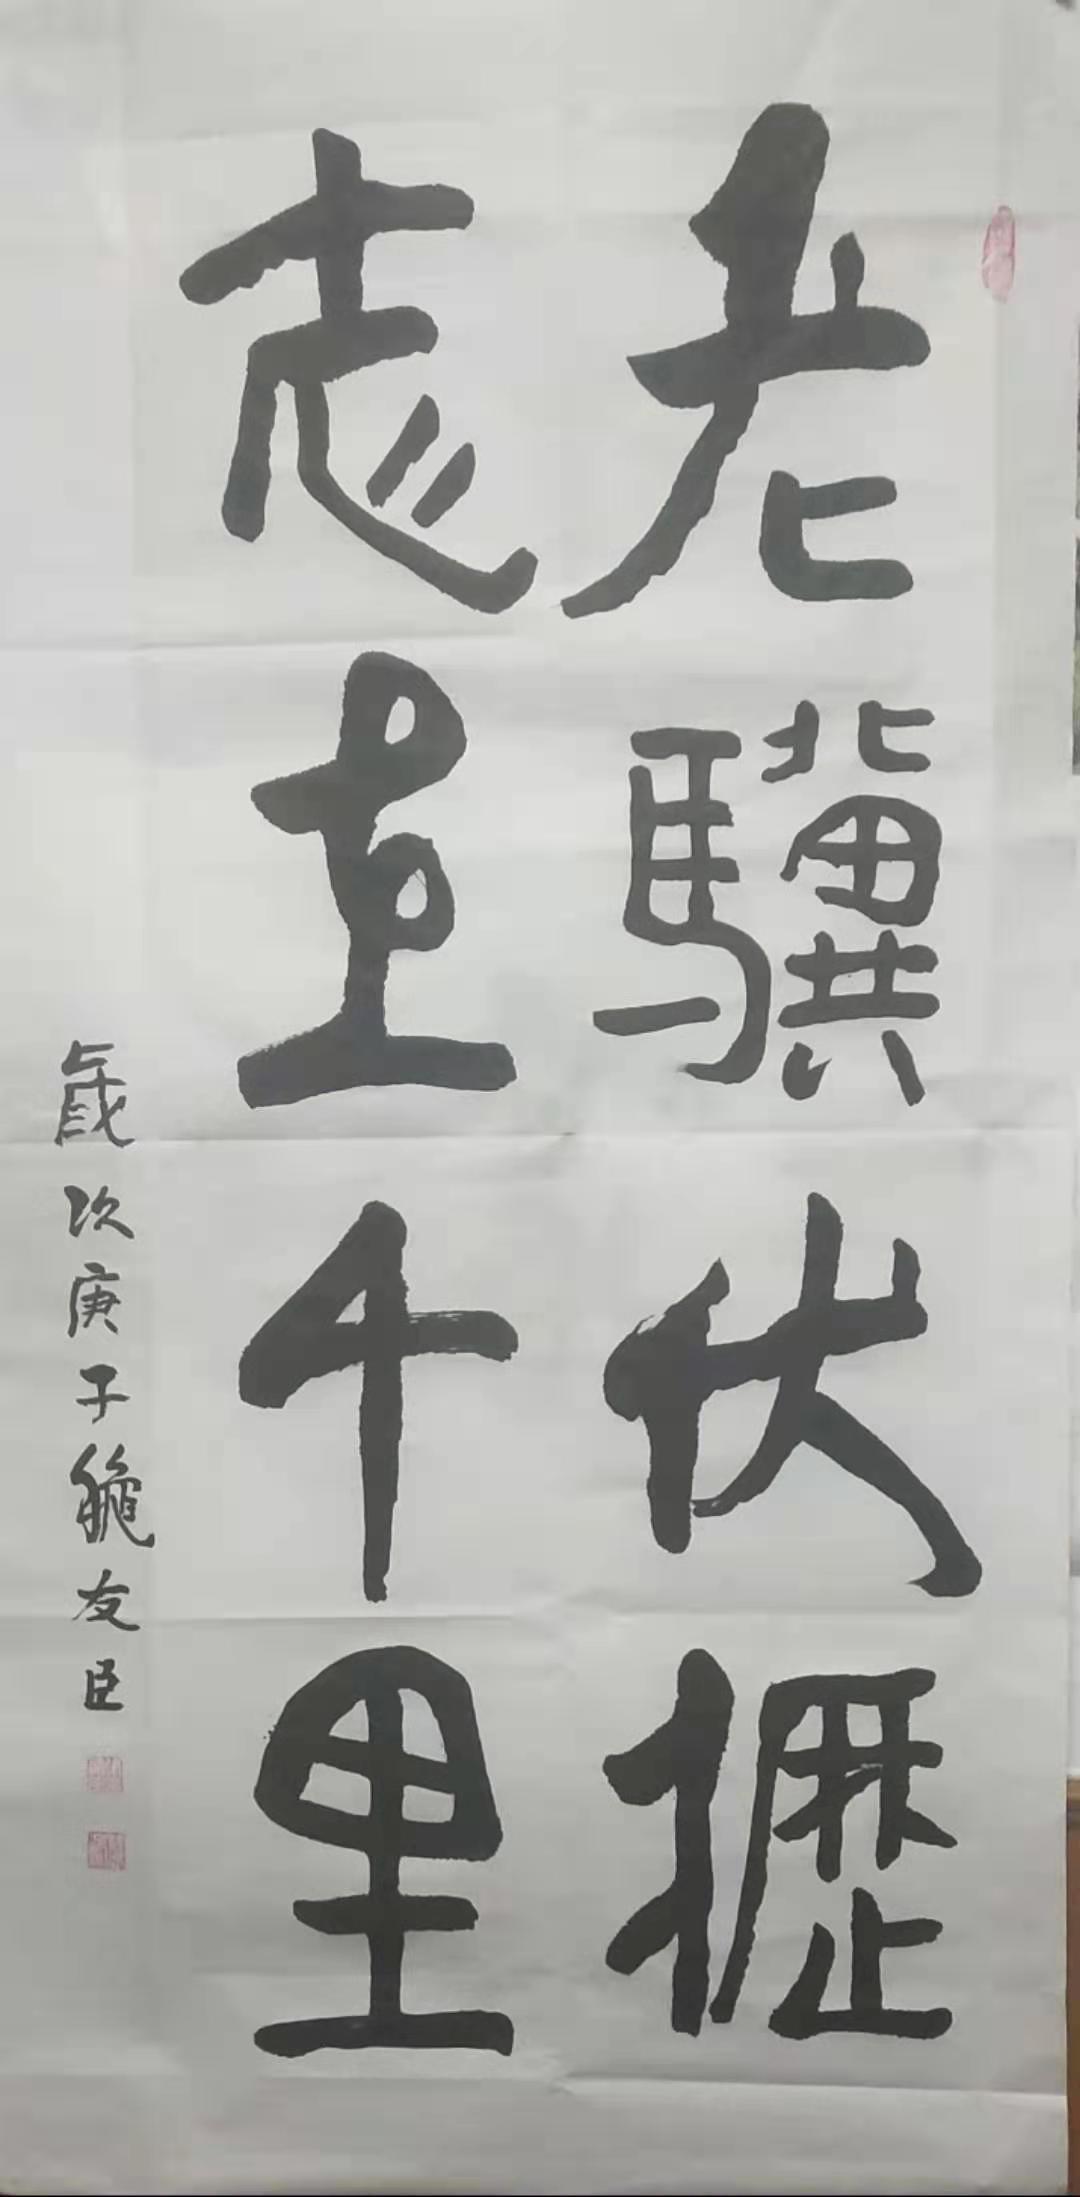 老驥伏櫪
志在千里
歲次庚子龝友臣